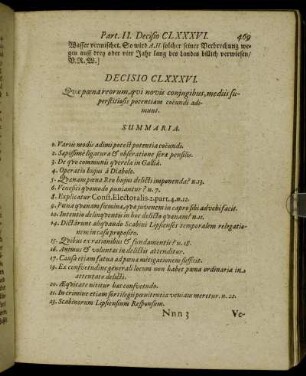 Part. II. Decisio CLXXXVI. 469
Wasser vermischet. So wird A.H. solcher seiner Verbrechung we-
gen auff drey oder vier Jahr lang des Landes billich verwiesen/
V.R.W.]
DECISIO CLXXXVI.
Quæ pœna reorum, qvi novis conjugibus, mediis su-
perstitiosis potentiam coëundi adi-
munt.
SUMMARIA.
1. Variis mediis adimi potest potentia coëundi.
2. Sæpissimè ligatura & obseratione seræ pensilis.
3. De qvo communis qverela in Gallia.
4. Operatio hujus à Diabolo.
5. Qvænam pœna Reo hujus delicti imponenda? n. 13.
6. Venefici qvomodo puniantur? n. 7.
8. Explicatur Const. Electoralis 2. part. 4. n. 12.
9. Pœna qvænam fœminæ, qvæ juvenem in capro sibi advehi facit.
10. Intentio delinqventis in hoc delicto qvænam? n. 11.
14. Dictitrant aliqvando Scabini Lipsienses temporalem relegatio-
nem in casu proposito.
15. Qvibus ex rationibus & fundamentis? n. 18.
16. Animus & voluntas in delictis attenditur.
17. Causa etiam fatua ad pœnæ mitigationem sufficit.
19. Ex consvetudine generali locum non habet pœna ordinaria in
attentato delicto.
20. Æqvitate nititur hæc consvetudo.
21. In crimine etiam sortilegii pœnitentia veniam meretur. n. 22.
23. Scabinorum Lipsiensium Responsum.
Nnn 3 Ve-